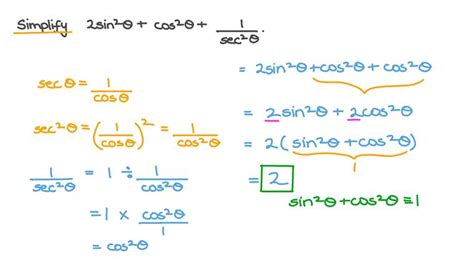 Simplify 2sin²θ + cos²θ + 1/sec²θ.
secθ = 1/cosθ
sec²θ = (1/cosθ)² = 1/cos²θ
1/sec²θ = 1 ÷ 1/cos²θ
= 1 × cos²θ/1
= cos²θ
= 2sin²θ + cos²θ + cos²θ
= 2sin²θ + 2cos²θ
= 2(sin²θ + cos²θ)
1
= 2
sin²θ + cos²θ ≡ 1